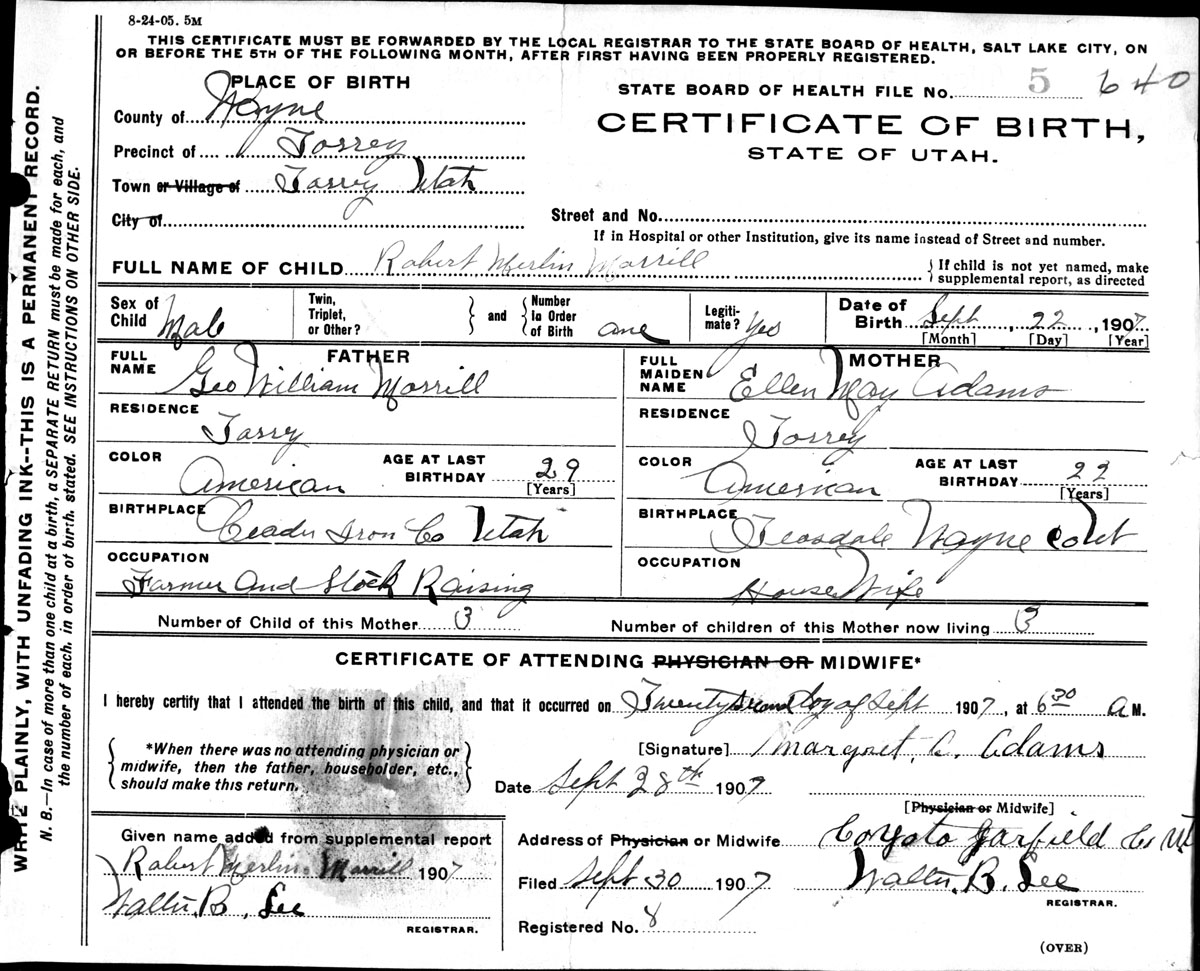 8-24-05. 5M
THIS CERTIFICATE MUST BE FORWARDED BY THE LOCAL REGISTRAR TO THE STATE BOARD OF HEALTH, SALT LAKE CITY, ON
OR BEFORE THE 5TH OF THE FOLLOWING MONTH, AFTER FIRST HAVING BEEN PROPERLY REGISTERED.
WRITE PLAINLY, WITH UNFADING INK--THIS IS A PERMANENT RECORD.
N. B.—In case of more than one child at a birth, a SEPARATE RETURN must be made for each, and
the number of each, in order of birth, stated. SEE INSTRUCTIONS ON OTHER SIDE.
PLACE OF BIRTH
County of Wayne
Precinct of Torrey
Town or Village of Torrey Utah
City of
STATE BOARD OF HEALTH FILE No. 5 640
CERTIFICATE OF BIRTH,
STATE OF UTAH.
Street and No.
If in Hospital or other Institution, give its name instead of Street and number.
FULL NAME OF CHILD Robert Merlin Morrill
{ If child is not yet named, make
supplemental report, as directed
Sex of Child Male
Twin, Triplet, or Other?
} and { Number In Order of Birth one
Legiti- mate? Yes
Date of Birth Sept, 22, 1907
[Month] [Day] [Year]
FATHER
FULL NAME Geo William Morrill
RESIDENCE
Torrey
COLOR American
AGE AT LAST BIRTHDAY 29
[Years]
BIRTHPLACE Ceader Iron Co Utah
OCCUPATION
Farmer And Stock Raising
MOTHER
FULL MAIDEN NAME Ellen May Adams
RESIDENCE
Torrey
COLOR American
AGE AT LAST BIRTHDAY 22
[Years]
BIRTHPLACE Teasdale Wayne co Ut
OCCUPATION
House Wife
Number of Child of this Mother 3
Number of children of this Mother now living 3
CERTIFICATE OF ATTENDING PHYSICIAN OR MIDWIFE*
I hereby certify that I attended the birth of this child, and that it occurred on Twenty second day of Sept 1907, at 6 30 a M.
{ *When there was no attending physician or
midwife, then the father, householder, etc.,
should make this return. }
[Signature] Margret, C. Adams
Date Sept 28th 1907
[Physician or Midwife]
Given name added from supplemental report
Robert Merlin Morrill 1907
Walter. B. Lee
REGISTRAR.
Address of Physician or Midwife Coyoto Garfield Co Ut
Filed Sept 30 1907
Walter. B. Lee
REGISTRAR.
Registered No. 8
(OVER)